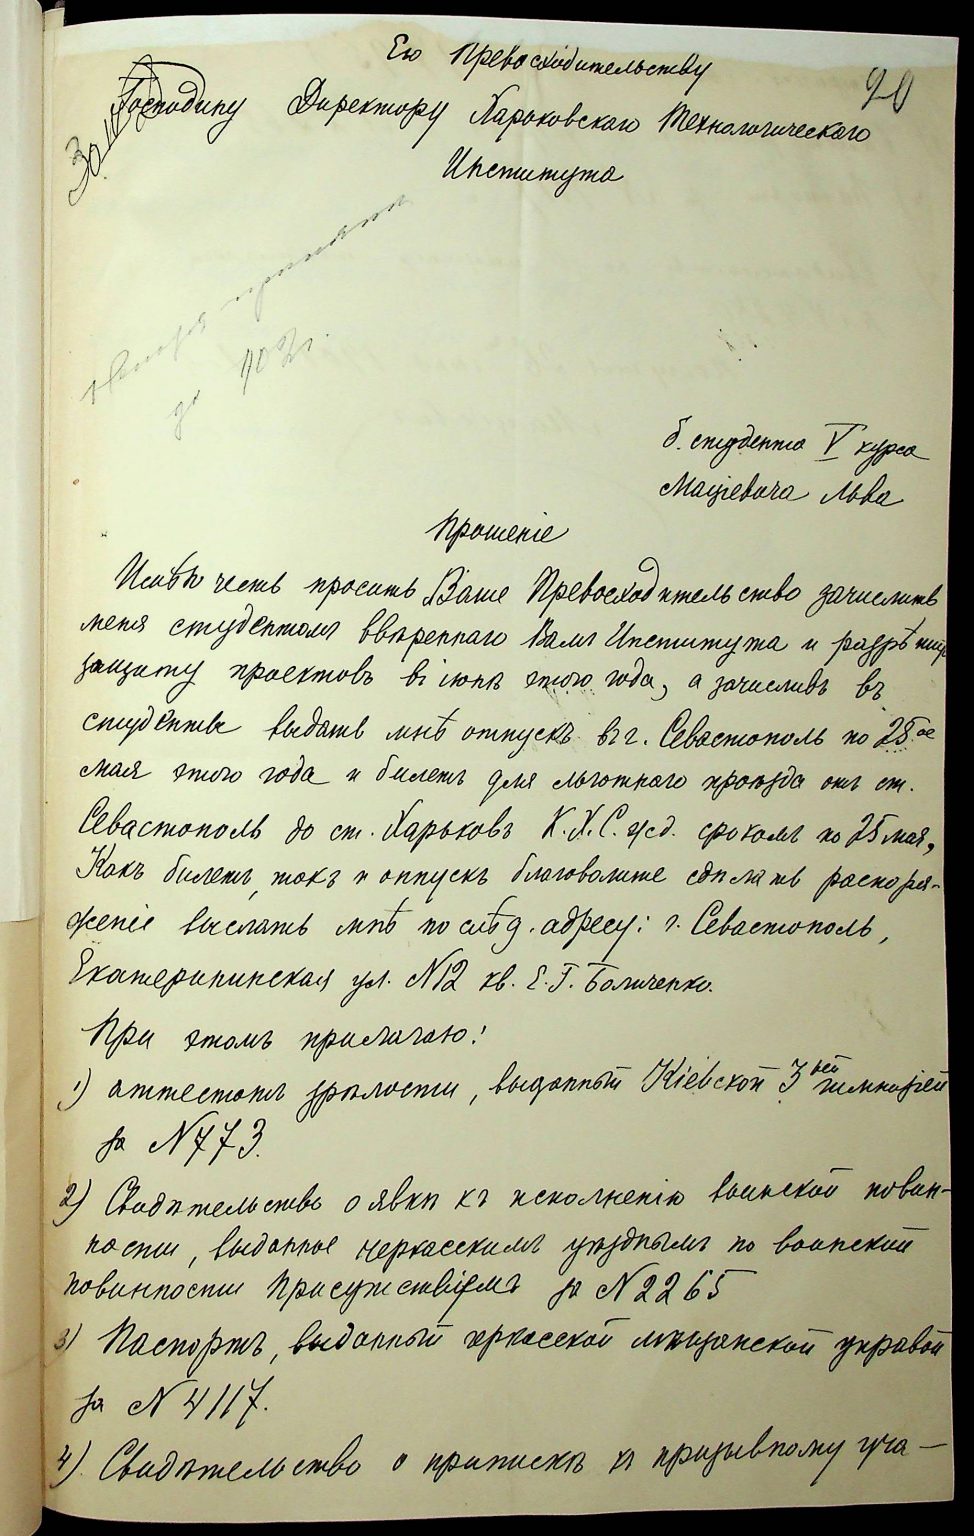 Его Превосходительству
20
Господину Директору Харьковскаго Технологическаго
Института
принята
за 1902 г.
б. студента V курса
Мацѣевича Льва
Прошеніе
Имѣю честь просить Ваше Превосходительство зачислить
меня студентомъ ввѣреннаго Вамъ Института и разрѣшить
защиту проектовъ въ іюнѣ этого года, а зачисливъ въ
студенты выдать мнѣ отпускъ въ г. Севастополь по 25ое
мая этого года и билетъ для льготнаго проѣзда отъ ст.
Севастополь до ст. Харьковъ К.Х.С. жд. срокомъ по 25 мая,
Какъ билетъ, такъ и отпускъ благоволите сдѣлать распоря-
женіе выслать мнѣ по слѣд. адресу: г. Севастополь,
Екатерининская ул. N12 кв. Е. Г.
При этомъ прилагаю:
1) аттестатъ зрѣлости, выданный Кіевской 3ьей гимназіей
за N773.
2) Свидѣтельство о явкѣ къ исполненію воинской повин-
ности, выданное черкасскимъ уѣзднымъ по воинской
повинности Присутствіемъ за N2265
3) Паспортъ, выданный черкасской мѣщанской управой
за N 4117.
4) Свидѣтельство о припискѣ къ призывному уча-